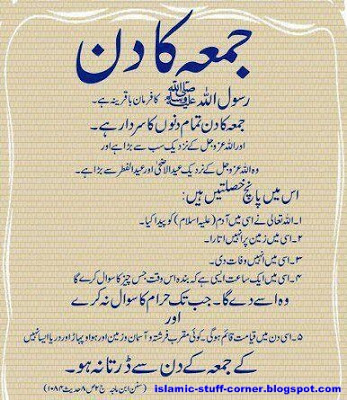 جمعہ کا دن
رسول اللہ ﷺ کا فرمان باقرینہ ہے۔
جمعہ کا دن تمام دنوں کا سردار ہے۔
اور اللہ عزوجل کے نزدیک سب سے بڑا ہے اور
وہ اللہ عزوجل کے نزدیک عید الاضحیٰ اور عید الفطر سے بڑا ہے۔
اس میں پانچ خصلتیں ہیں:
۱۔ اللہ تعالیٰ نے اسی میں آدم (علیہ السلام) کو پیدا کیا۔
۲۔ اسی میں زمین پر انہیں اتارا۔
۳۔ اسی میں انہیں وفات دی۔
۴۔ اسی میں ایک ساعت ایسی ہے کہ بندہ اس وقت جس چیز کا سوال کرے گا
وہ اسے دے گا۔ جب تک حرام کا سوال نہ کرے
اور
۵۔ اسی دن میں قیامت قائم ہوگی۔ کوئی مقرب فرشتہ و آسمان و زمین اور ہوا و پہاڑ اور دریا ایسا نہیں
کے جمعہ کے دن سے ڈرتا نہ ہو۔
(سنن ابن ماجہ ج ۲ ص ۸ حدیث ۱۰۸۴)
islamic-stuff-corner.blogspot.com